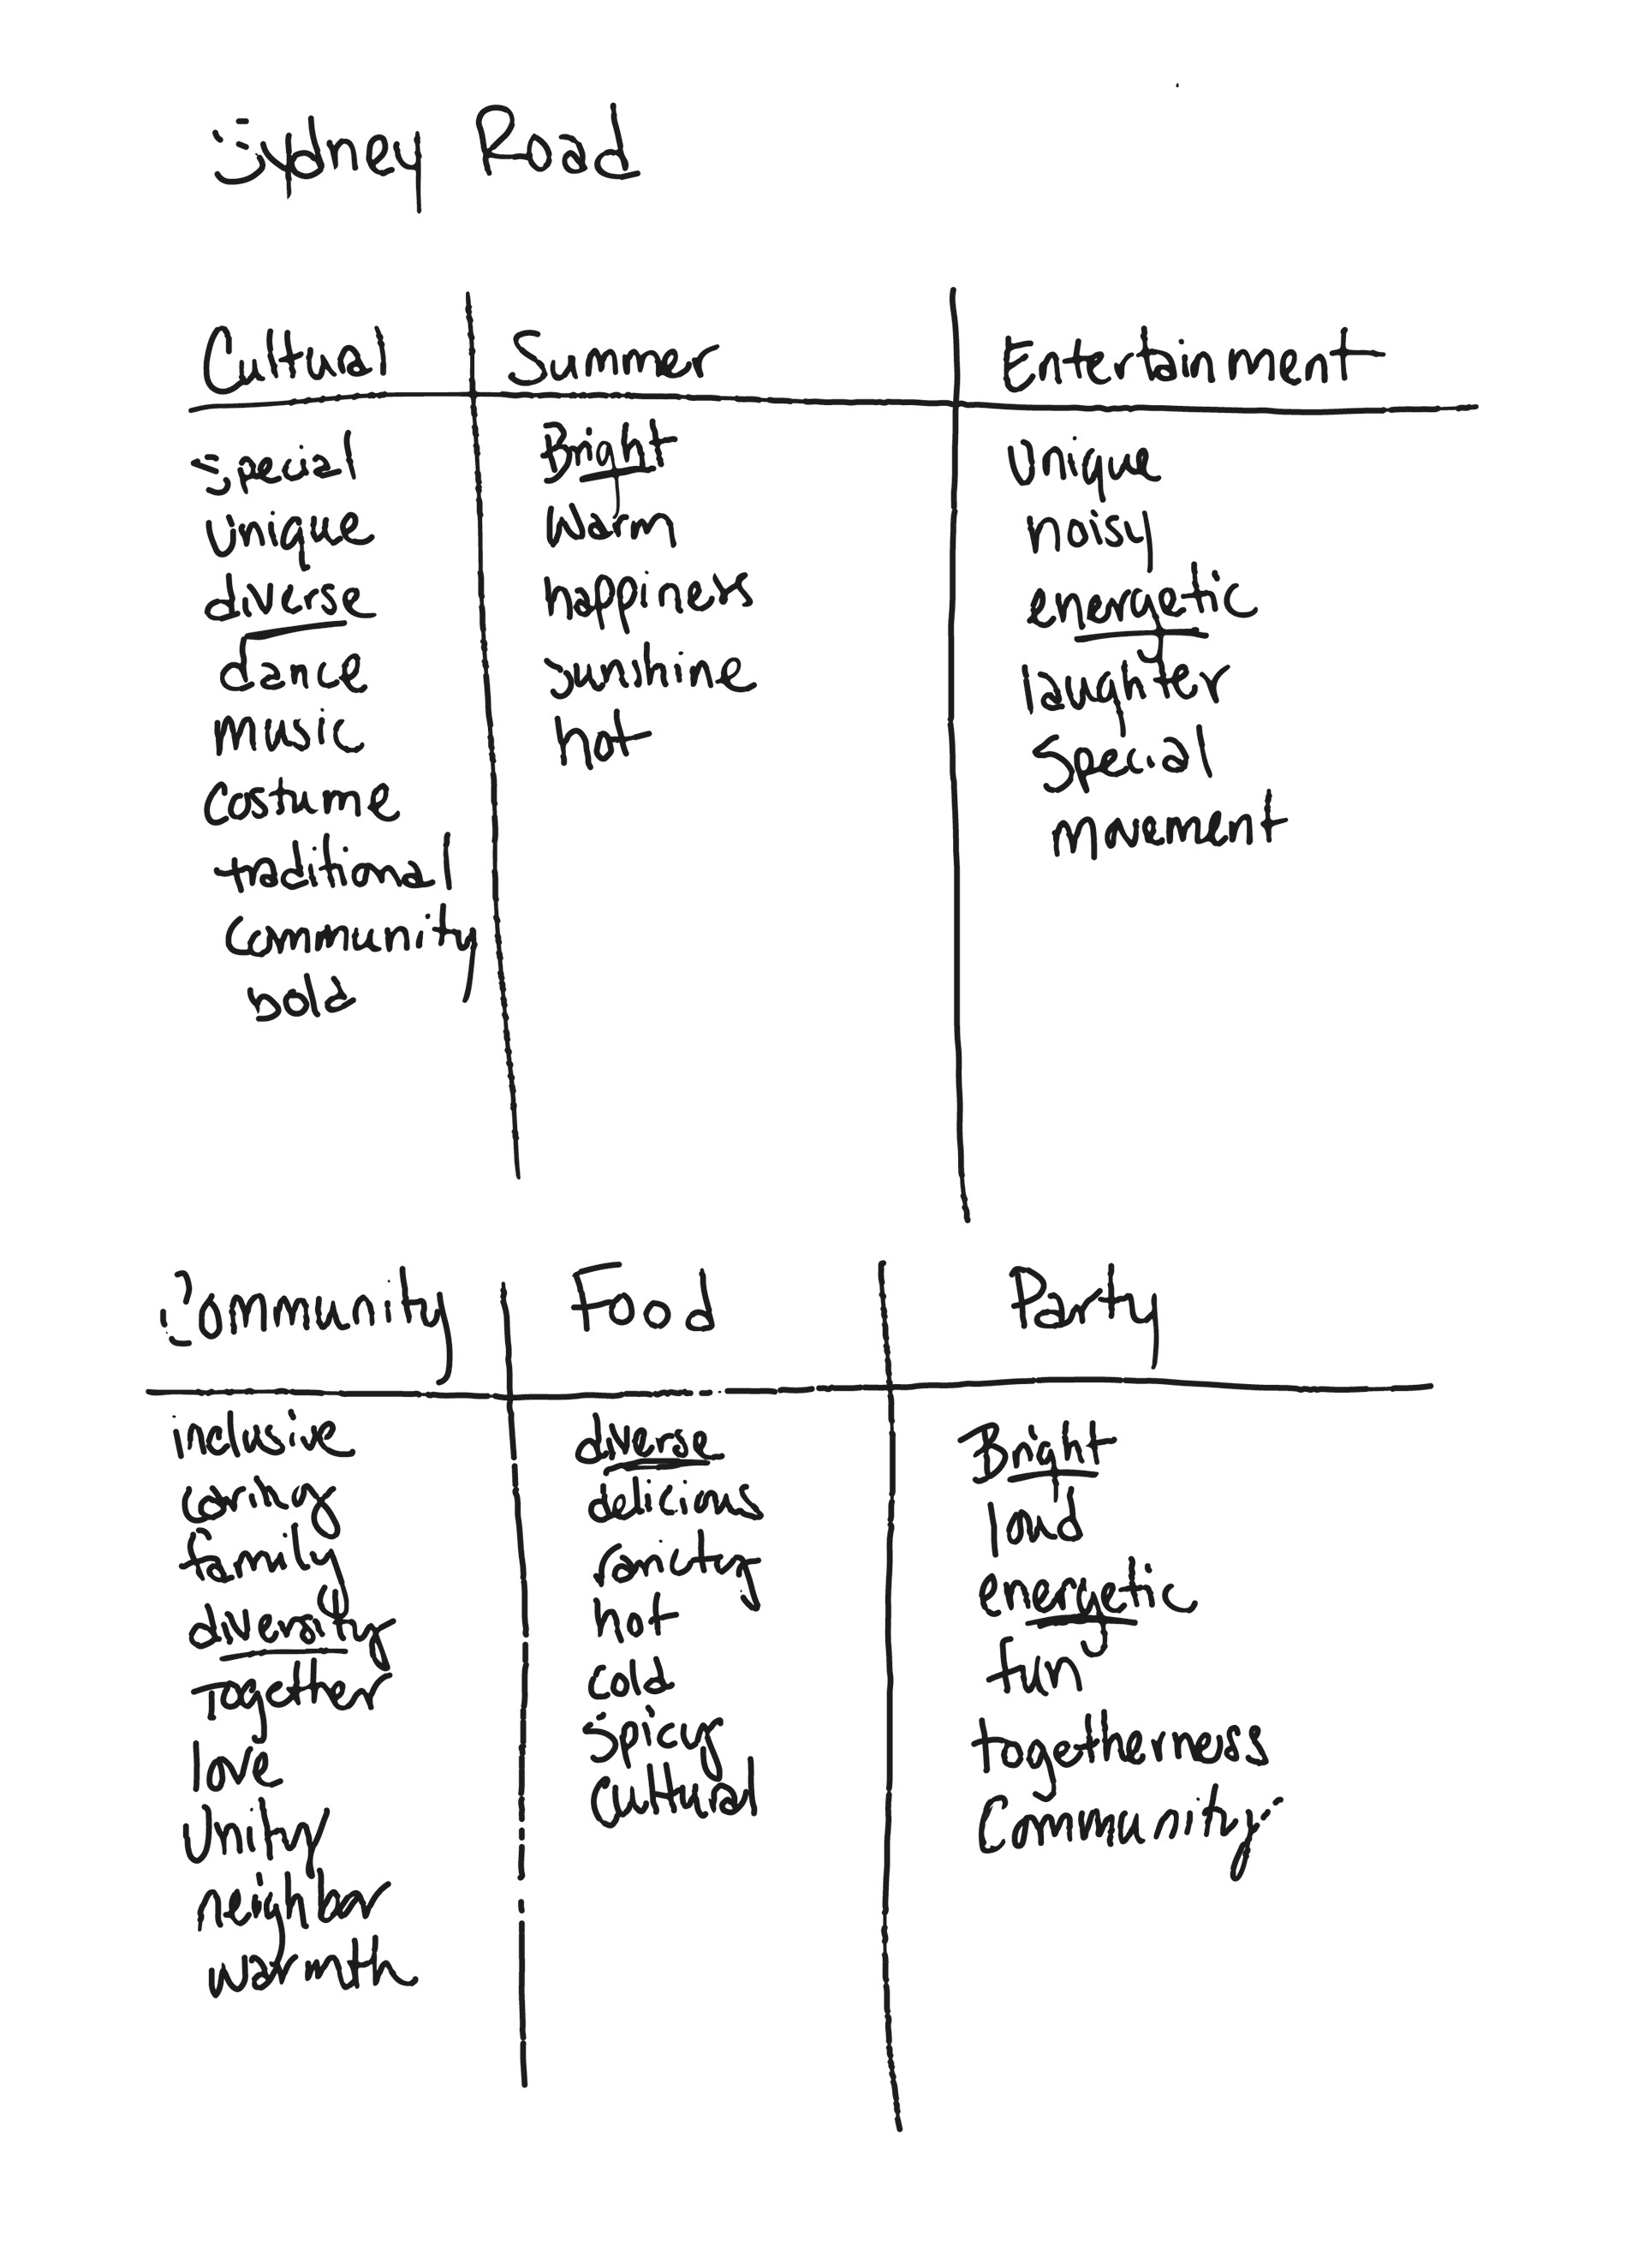 Sydney Road
Cultural
special
unique
diverse
dance
music
costume
traditional
community
bold
Summer
Bright
warm
happiness
sunshine
hot
Entertainment
Unique
noisy
energetic
laughter
Special
movement
Community
inclusive
caring
family
diversity
Together
love
Unity
neighbor
warmth
Food
diverse
delicious
variety
hot
cold
spicy
cultural
Party
Bright
loud
energetic
fun
togetherness
Community